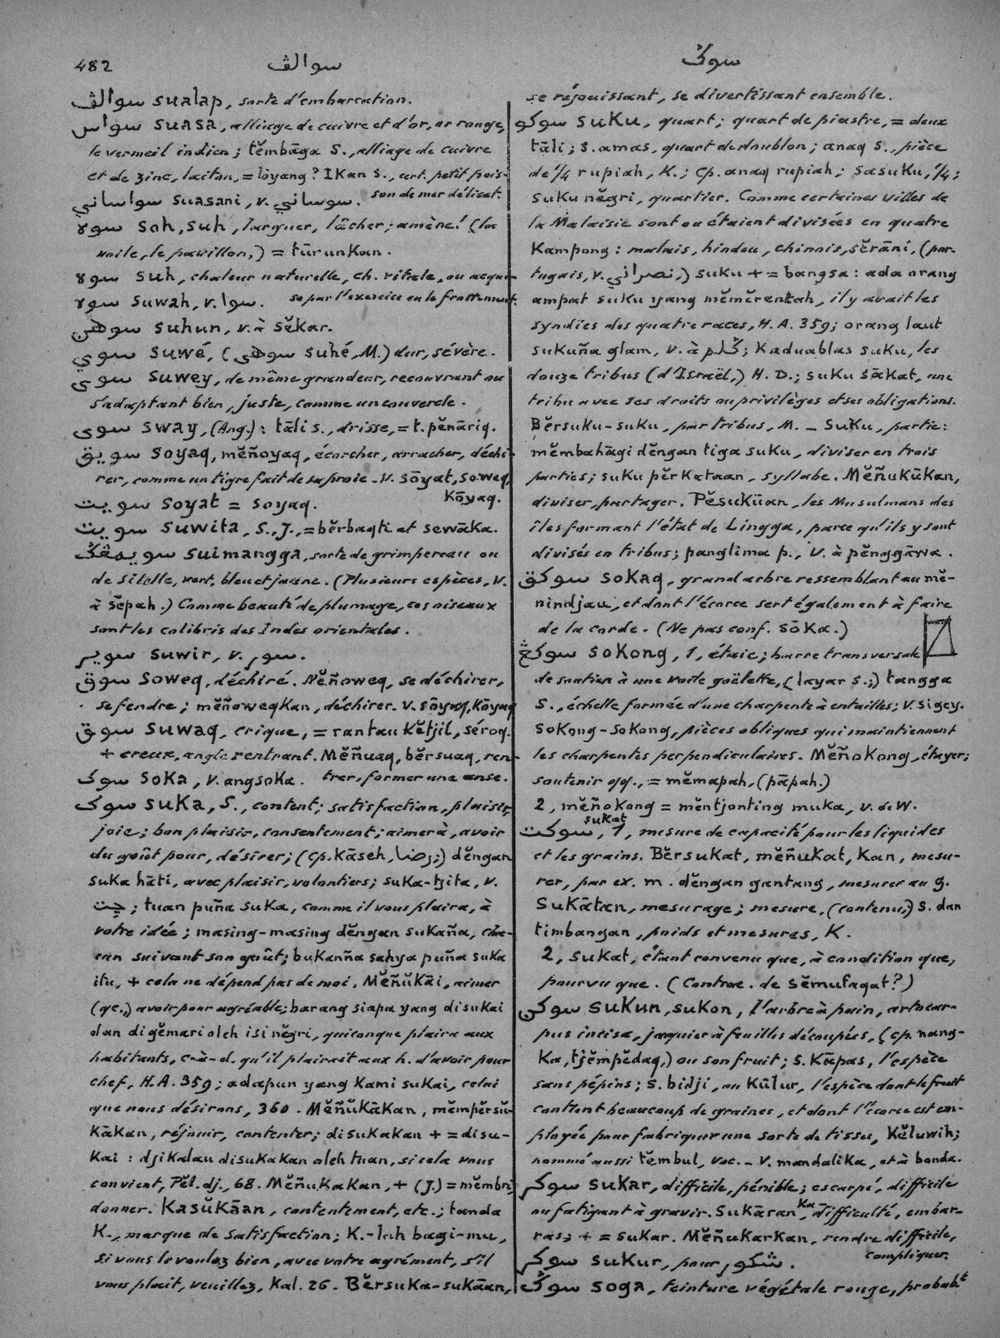 482 سوالڤ سوکݢ
سوالڤ sualap, sorte d'embarcation.
سواس suasa, alliage de cuivre et d'or, or rouge,
le vermeil indien; tĕmbāga S., alliage de cuivre
et de zinc, laiton, = lōyang? Ikan S., cert. petit pois-
سواساني suasani, v. سوساني. son de mer délicat.
سوه soh, suh, larguer, lâcher; amène! (la
voile, le pavillon,) = tūrunkan.
سوه suh, chaleur naturelle, ch. vitale, ou acqui-
سوه suwah, v. سوا. se par l'exercice ou le frottement.
سوهن suhun, v. à sĕkar.
سوي suwé, (سوهي suhé, M.) dur, sévère.
سوي suwey, de même grandeur, recouvrant ou
s'adaptant bien, juste, comme un couvercle.
سوي sway, (Ang.): tāli s., drisse, = t. pĕnāriq.
سويق soyaq, mĕñoyaq, écorcher, arracher, déchi-
rer, comme un tigre fait de sa proie. V. sōyat, soweq,
سويت soyat = soyaq. Kōyaq.
سويت suwita, S., J., = bĕrbaqti et sewāka.
سويمڠݢ suimangga, sorte de grimpereau ou
de sitelle, vert, bleu et jaune. (Plusieurs espèces, V.
à sĕpah.) Comme beauté de plumage, ces oiseaux
sont les colibris des Indes orientales.
سوير suwir, v. سور.
سوق soweq, déchiré. Mĕñoweq, se déchirer,
se fendre; mĕñoweqkan, déchirer. V. sōyaq, Kōyaq
سوق suwaq, crique, = rantau kĕtjil, séroq.
+ creux, angle rentrant. Mĕñuaq, bĕrsuaq, ren-
سوک soka, v. angsoka. trer, former une anse.
سوک suka, S., content; satisfaction, plaisir,
joie; bon plaisir, consentement; aimer à, avoir
du goût pour, désirer; (cp. kāseh, رضا;) dĕngan
suka hāti, avec plaisir, volontiers; suka-tjita, v.
چيت; tuan puña suka, comme il vous plaira, à
votre idée; masing-masing dĕngan sukaña, cha-
cun suivant son goût; bukanña sahya puña suka
itu, + cela ne dépend pas de moi. Mĕñukāi, aimer
(qc.,) avoir pour agréable; barang siapa yang disukai
dan digĕmari oleh isi nĕgri, quiconque plaira aux
habitants, c-à-d. qu'il plairait aux h. d'avoir pour
chef, H.A. 359; adapun yang kami sukai, celui
que nous désirons, 360. Mĕñukākan, mĕmpĕrsu-
kākan, réjouir, contenter; disukakan + = disu-
kai: djikalau disukakan oleh tuan, si cela vous
convient, Pĕl. dj., 68. Mĕñukakan, + (J.) = mĕmbri,
donner. Kasukāan, contentement, etc.; tanda
K., marque de satisfaction; K.-lah bagi-mu,
si vous le voulez bien, avec votre agrément, s'il
vous plait, veuillez, Kal. 26. Bĕrsuka-sukāan,
se réjouissant, se divertissant ensemble.
سوکو suku, quart; quart de piastre, = deux
tāli; s. amas, quart de doublon; anaq s., pièce
de 1/4 rupiah, K.; cp. anaq rupiah; sasuku, 1/4;
suku nĕgri, quartier. Comme certaines villes de
la Malaisie sont ou étaient divisées en quatre
Kampong: malais, hindou, chinois, sĕrāni, (por-
tugais, v. نصراني,) suku + = bangsa: ada orang
ampat suku yang mĕmĕrentah, il y avait les
syndics des quatre races, H.A. 359; orang laut
sukuña glam, v. à ݢلم; kaduablas suku, les
douze tribus (d'Israël,) H.D.; suku sākat, une
tribu avec ses droits ou privilèges et ses obligations.
Bĕrsuku-suku, par tribus, M. _ Suku, partie:
mĕmbahāgi dĕngan tiga suku, diviser en trois
parties; suku pĕrkataan, syllabe. Mĕñukūkan,
diviser, partager. Pĕsukūan, les Musulmans des
îles formant l'état de Lingga, parce qu'ils y sont
divisés en tribus; panglima p., v. à pĕnggāwa.
سوکق sokaq, grand arbre ressemblant au mĕ-
nindjau, et dont l'écorce sert également à faire
de la corde. (Ne pas conf. sōka.)
سوکڠ sokong, 1, étaie; barre transversale
de soutien à une voile goëlette, (layar s.;) tangga
S., échelle formée d'une charpente à entailles; v. sigey.
Sokong-sokong, pièces obliques qui maintiennent
les charpentes perpendiculaires. Mĕñokong, étayer;
soutenir qq., = mĕmapah, (pāpah.)
2, mĕñokong = mĕntjonting muka, v. de W.
سوکت sukat, 1, mesure de capacité pour les liquides
et les grains. Bĕrsukat, mĕñukat, kan, mesu-
rer, par ex. m. dĕngan gantang, mesurer au g.
Sukātan, mesurage; mesure, (contenu,) s. dan
timbangan, poids et mesures, K.
2, sukat, étant convenu que, à condition que,
pourvu que. (Contrac. de sĕmufaqat?)
سوکن sukun, sukon, l'arbre à pain, artocar-
pus incisa, jaquier à feuilles découpées, (cp. nang-
ka, tjĕmpĕdaq,) ou son fruit; s. kāpas, l'espèce
sans pépins; s. bidji, ou kūlur, l'espèce dont le fruit
contient beaucoup de graines, et dont l'écorce est em-
ployée pour fabriquer une sorte de tissu, kĕluwih;
nommé aussi tĕmbul, voc. _ V. mandalika, et à banda.
سوکر sukar, difficile, pénible; escarpé, difficile
ou fatigant à gravir. Sukāran, ka, difficulté, embar-
ras; + = sukar. Mĕñukarkan, rendre difficile,
سوکر sukur, pour شکور. compliquer.
سوݢ soga, teinture végétale rouge, probabt